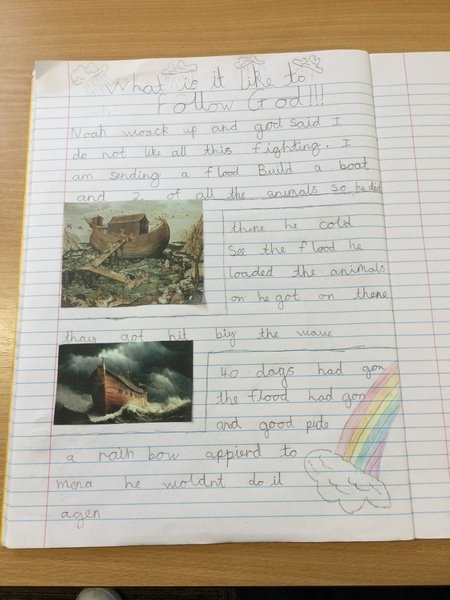 What is it like to
Follow God!!!
Noah woack up and god said I
do not like all this fighting. I
am sending a flood Build a boat
and 2 of all the animals so he did
there he cold
See the flood he
loaded the animals
on he got on there
thay got hit biy the wave
40 days had gon
the flood had gon
and good pute
a rath bow appierd to
mena he woldnt do it
agen